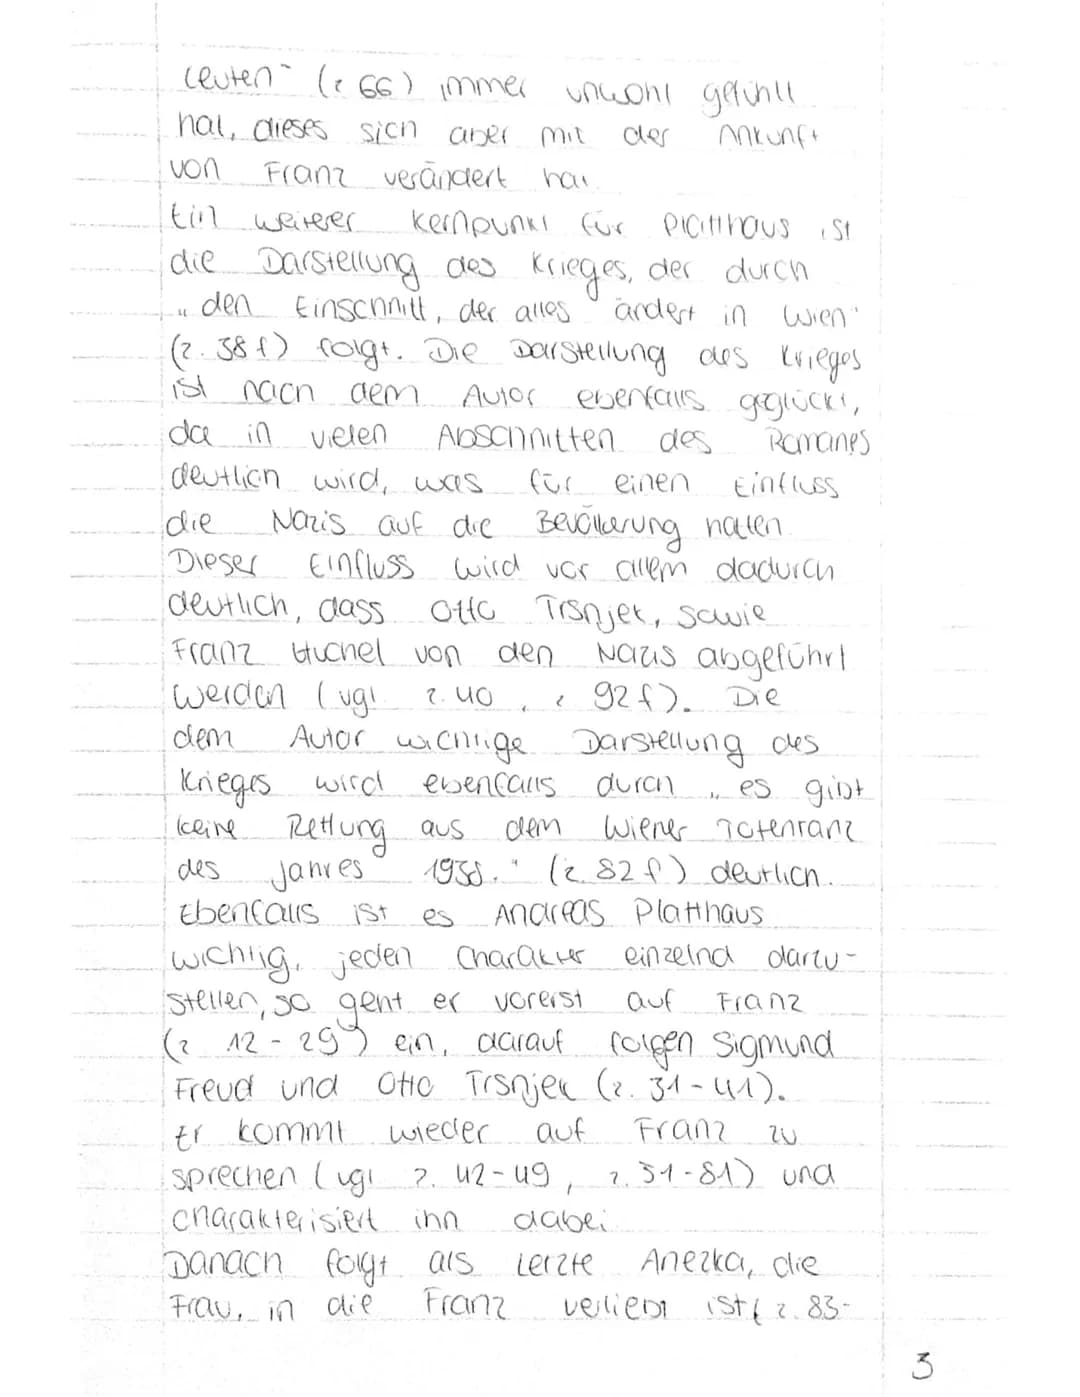 Leuten" (z 66) immer unwohl gefühlt
hat, dieses sich aber mit der Ankunft
von Franz verändert hat.
Ein weiterer Kernpunkt für Platthaus ist
die Darstellung des Krieges, der durch
„den Einschnitt, der alles ändert in Wien"
(z. 38 f) folgt. Die Darstellung des Krieges
ist nach dem Autor ebenfalls geglückt,
da in vielen Abschnitten des Romanes
deutlich wird, was für einen Einfluss
die Nazis auf die Bevölkerung hatten.
Dieser Einfluss wird vor allem dadurch
deutlich, dass Otto Trsnjek, sowie
Franz Huchel von den Nazis abgeführt
werden (vgl z. 40, z 92 f). Die
dem Autor wichtige Darstellung des
Krieges wird ebenfalls durch „es gibt
keine Rettung aus dem Wiener Totentanz
des Jahres 1938." (z. 82 f) deutlich.
Ebenfalls ist es Andreas Platthaus
wichtig, jeden Charakter einzelnd darzu-
stellen, so geht er vorerst auf Franz
(z 12-29) ein, darauf folgen Sigmund
Freud und Otto Trsnjek (z. 31-41).
Er kommt wieder auf Franz zu
sprechen (vgl z. 42-49, z. 51-81) und
charakterisiert ihn dabei.
Danach folgt als letzte Anezka, die
Frau, in die Franz verliebt ist (z. 83-
3